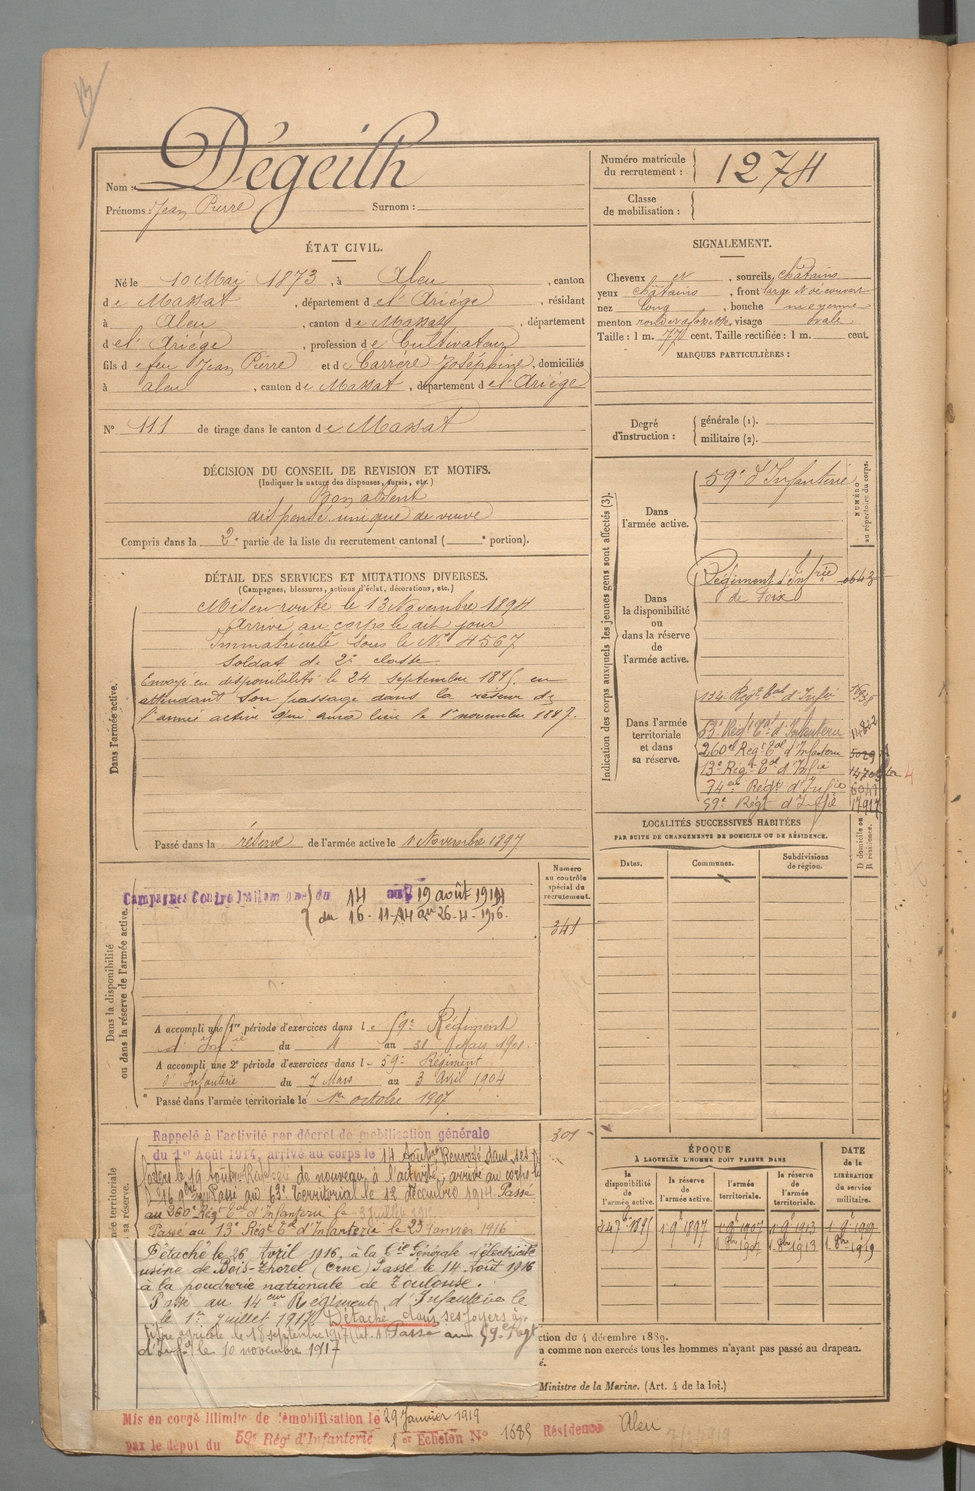 Nom : Dégeilh
Prénoms : Jean Pierre Surnom :
Numéro matricule du recrutement : 1274
Classe de mobilisation :
ÉTAT CIVIL.
Né le 10 Mai 1873, à Aleu, canton
de Massat, département de l'Ariége, résidant
à Aleu, canton de Massat, département
de l'Ariége, profession de Cultivateur
fils de feu Jean Pierre et de Carrère Joséphine, domiciliés
à aleu, canton de Massat, département de l'Ariége
N° 111 de tirage dans le canton de Massat
SIGNALEMENT.
Cheveux et, sourcils châtains
yeux châtains, front large et découvert
nez long, bouche moyenne
menton rond et à fossette, visage ovale
Taille : 1 m. 77 cent. Taille rectifiée : 1 m. cent.
MARQUES PARTICULIÈRES :
Degré d'instruction : générale (1).
militaire (2).
DÉCISION DU CONSEIL DE REVISION ET MOTIFS.
(Indiquer la nature des dispenses, sursis, etc.)
Bon absent
dispensé unique de veuve
Compris dans la 2e partie de la liste du recrutement cantonal ( e portion).
DÉTAIL DES SERVICES ET MUTATIONS DIVERSES.
(Campagnes, blessures, actions d'éclat, décorations, etc.)
Dans l'armée active.
Mis en route le 13 Novembre 1894
Arrivé au corps le dit jour
Immatriculé sous le N° 4567
Soldat de 2e classe
Envoyé en disponibilité le 24 Septembre 1895, en
attendant son passage dans la réserve de
l'armée active qui aura lieu le 1er novembre 1897.
Passé dans la réserve de l'armée active le 1er Novembre 1897
Indication des corps auxquels les jeunes gens sont affectés (3).
NUMÉRO au répertoire du corps.
Dans l'armée active.
59e d'Infanterie
Dans la disponibilité ou dans la réserve de l'armée active.
Régiment d'Infrie
de Foix
Dans l'armée territoriale et dans sa réserve.
134e Régt Eal d'Infie
53e Régt Eal d'Infanterie
260e Régt Eal d'Infanterie 5029
13e Régt Eal d'Infie
14e Régt d'Infie
59e Régt d'Infie
LOCALITÉS SUCCESSIVES HABITÉES
PAR SUITE DE CHANGEMENTS DE DOMICILE OU DE RÉSIDENCE.
D domicile ou R résidence.
Dates. Communes. Subdivisions de région.
Numéro au contrôle spécial du recrutement.
341
Dans la disponibilité ou dans la réserve de l'armée active.
Campagnes Contre l'allemagne du 14 au 19 août 1914
du 16-11-14 au 26-4-1916.
A accompli une 1re période d'exercices dans le 59e Régiment
d'Infie du 4 au 31 Mars 1901.
A accompli une 2e période d'exercices dans le 59e Régiment
d'Infanterie du 7 Mars au 3 Avril 1904
Passé dans l'armée territoriale le 1er octobre 1907
301
Rappelé à l'activité par décret de mobilisation générale
du 1er Août 1914, arrivé au corps le 14 Août. Renvoyé dans ses
foyers le 19 août. Rappelé de nouveau à l'activité, arrivé au corps le
16 9bre 1914 Passé au 53e territorial le 12 décembre 1914. Passé
au 260e Régt Eal d'Infanterie le 3 juillet 1915
Passé au 13e Régt Eal d'Infanterie le 23 janvier 1916
Détaché le 26 Avril 1916, à la Cie Générale d'électricité
usine de Bois-Thorel (Orne) Passé le 14 Août 1916
à la poudrerie nationale de Toulouse.
Passé au 14eme Régiment d'Infanterie le
le 1er juillet 1917 Détaché dans ses foyers à
titre agricole le 18 septembre 1917 Passé au 59e Régt
d'Infie le 10 novembre 1917
ÉPOQUE
A LAQUELLE L'HOMME DOIT PASSER DANS
la disponibilité de l'armée active.
la réserve de l'armée active.
l'armée territoriale.
la réserve de l'armée territoriale.
DATE de la LIBÉRATION du service militaire.
24 7bre 1895 1 9 1897 1 9 1907 1 9 1913 1 9 1919
1 8bre 1907 1 8bre 1913 1 8bre 1919
ction du 4 décembre 1889.
a comme non exercés tous les hommes n'ayant pas passé au drapeau.
é.
Ministre de la Marine. (Art. 4 de la loi.)
Mis en congé illimité de démobilisation le 29 Janvier 1919
par le dépot du 59e Régt d'Infanterie 1er Echelon N° 1689 Résidence Aleu